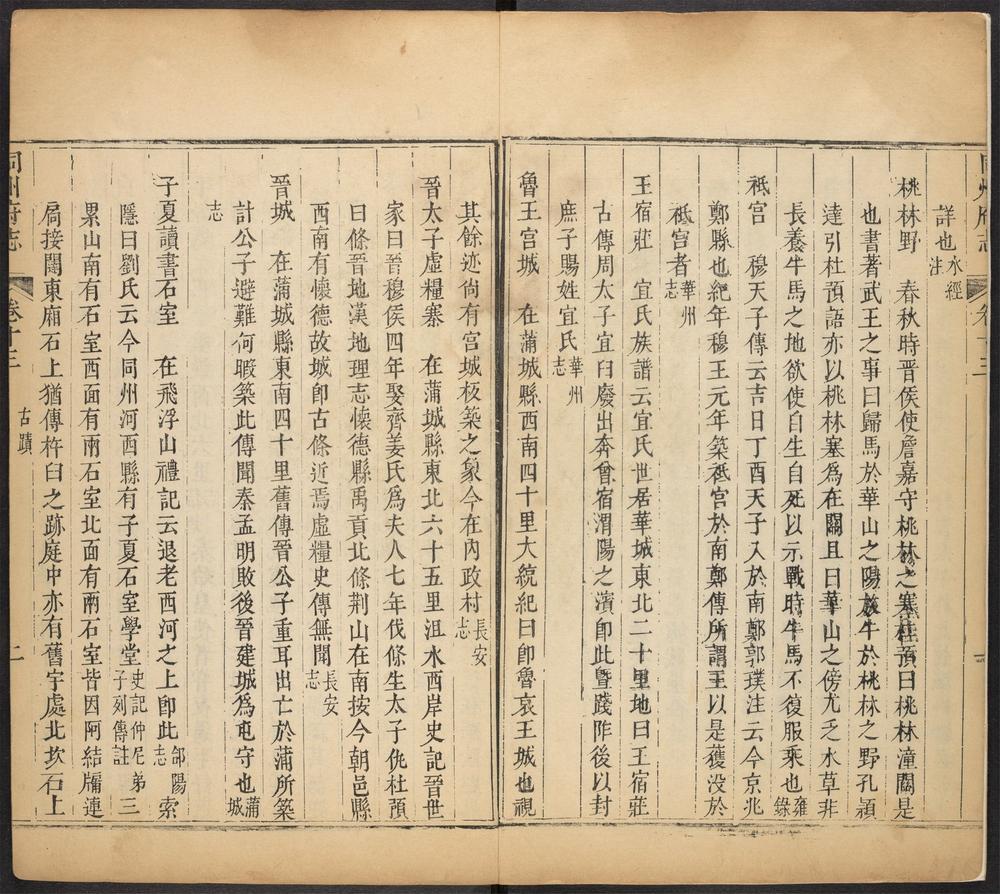 同州府志
詳也水經注
桃林野　春秋時晉侯使詹嘉守桃林之塞杜預曰桃林潼關是
也書著武王之事曰歸馬於華山之陽放牛於桃林之野孔頴
達引杜預語亦以桃林塞為在關且曰華山之傍尤乏水草非
長養牛馬之地欲使自生自死以示戰時牛馬不復服乘也雍錄
祗宮　穆天子傳云吉日丁酉天子入於南鄭郭璞注云今京兆
鄭縣也紀年穆王元年築祗宮於南鄭傳所謂王以是獲没於
祗宮者華州志
王宿莊　宜氏族譜云宜氏世居華城東北二十里地曰王宿莊
古傳周太子宜臼廢出奔曾宿渭陽之濱卽此暨踐阼後以封
庶子賜姓宜氏華州志
魯王宮城　在蒲城縣西南四十里大統紀曰卽魯哀王城也視
其餘迹尚有宮城板築之象今在內政村長安志
晉太子虛糧寨　在蒲城縣東北六十五里沮水西岸史記晉世
家曰晉穆侯四年娶齊姜氏為夫人七年伐條生太子仇杜預
曰條晉地漢地理志懷德縣禹貢北條荆山在南按今朝邑縣
西南有懷德故城卽古條近焉虛糧史傳無聞長安志
晉城　在蒲城縣東南四十里舊傳晉公子重耳出亡於蒲所築
計公子避難何暇築此傳聞秦孟明敗後晉建城爲屯守也蒲城
志
子夏讀書石室　在飛浮山禮記云退老西河之上卽此郃陽志索
隱曰劉氏云今同州河西縣有子夏石室學堂史記仲尼弟子列傳註三
累山南有石室西面有兩石室北面有兩石室皆因阿結牖連
扃接闥東廂石上猶傳杵臼之跡庭中亦有舊宇處北坎石上
同州府志
卷十三
古蹟
二